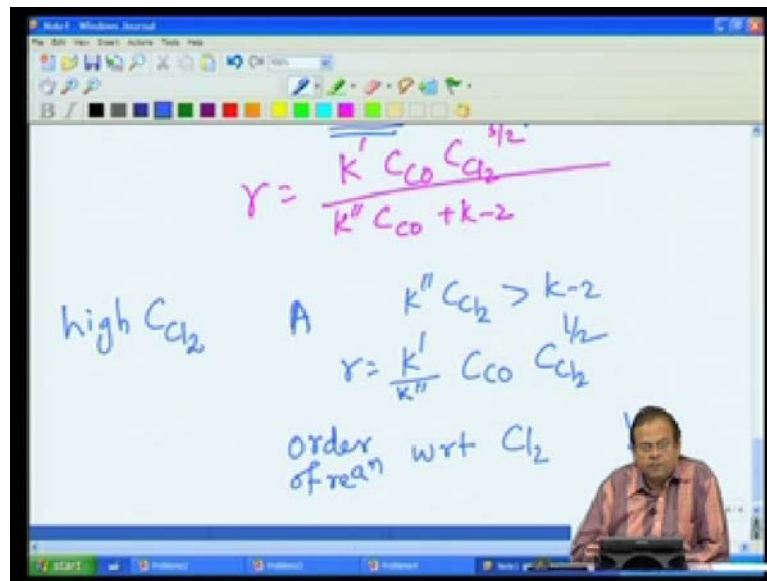 Note1 - Windows Journal
File Edit View Insert Actions Tools Help
B I
r = k' C_CO C_Cl2^3/2 / k'' C_CO + k-2
high C_Cl2 A k'' C_Cl2 > k-2
r = k'/k'' C_CO C_Cl2^1/2
order of rea^n wrt Cl2
start